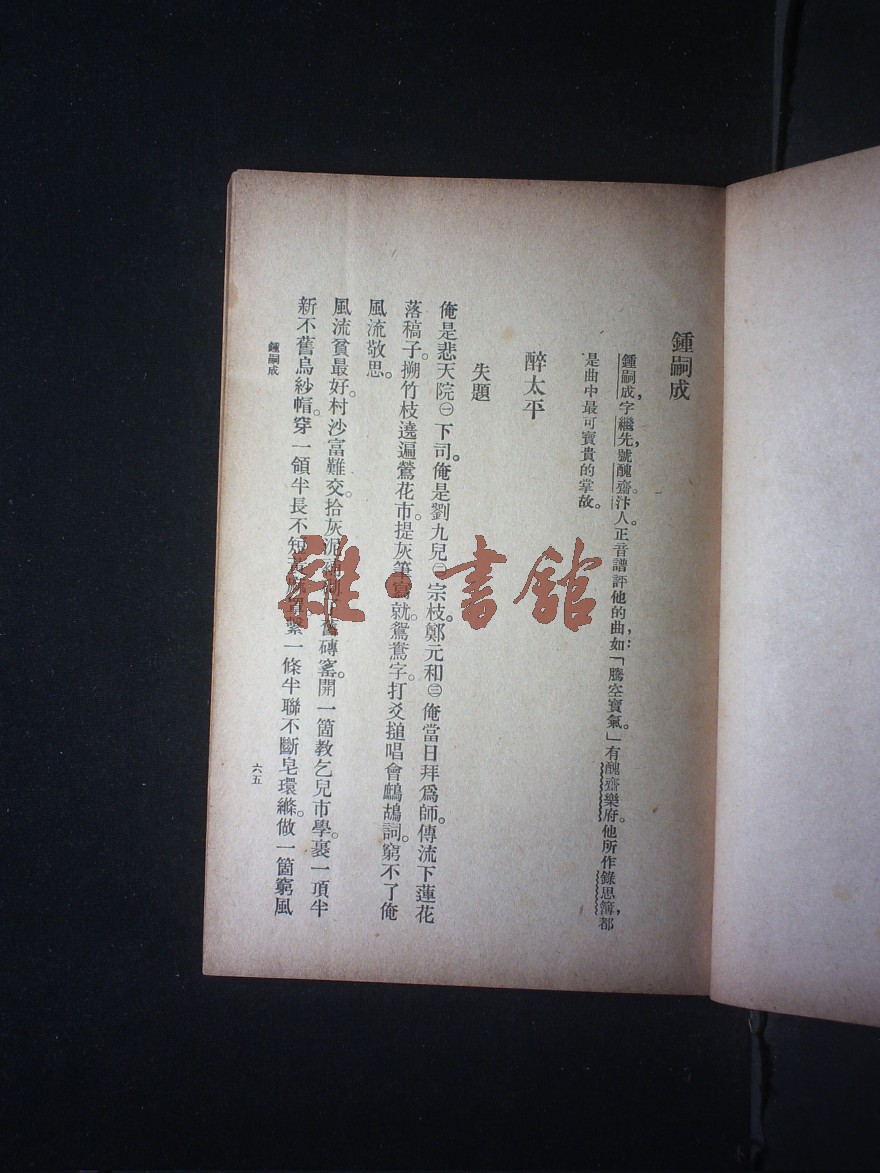 鍾嗣成
鍾嗣成，字繼先，號醜齋。汴人。正音譜評他的曲如：「騰空寶氣。」有醜齋樂府。他所作錄思簿，都
是曲中最可寶貴的掌故。
醉太平
失題
俺是悲天院㊀下司。俺是劉九兒㊁宗枝。鄭元和㊂俺當日拜爲師。傳流下蓮花
落稿子。搠竹枝遶遍鶯花市。提灰筆寫就鴛鴦字。打爻搥唱會鷓鴣詞。窮不了俺
風流敬思。
風流貧最好。村沙富難交。拾灰泥補舊磚窰。開一箇教乞兒市學。裹一項半
新不舊烏紗帽。穿一領半長不短繫一條半聯不斷皂環縧。做一箇窮風
鍾嗣成
六五
雜·書館